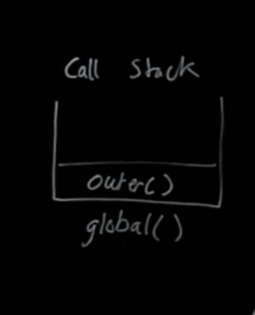 Call Stack
outer()
global()